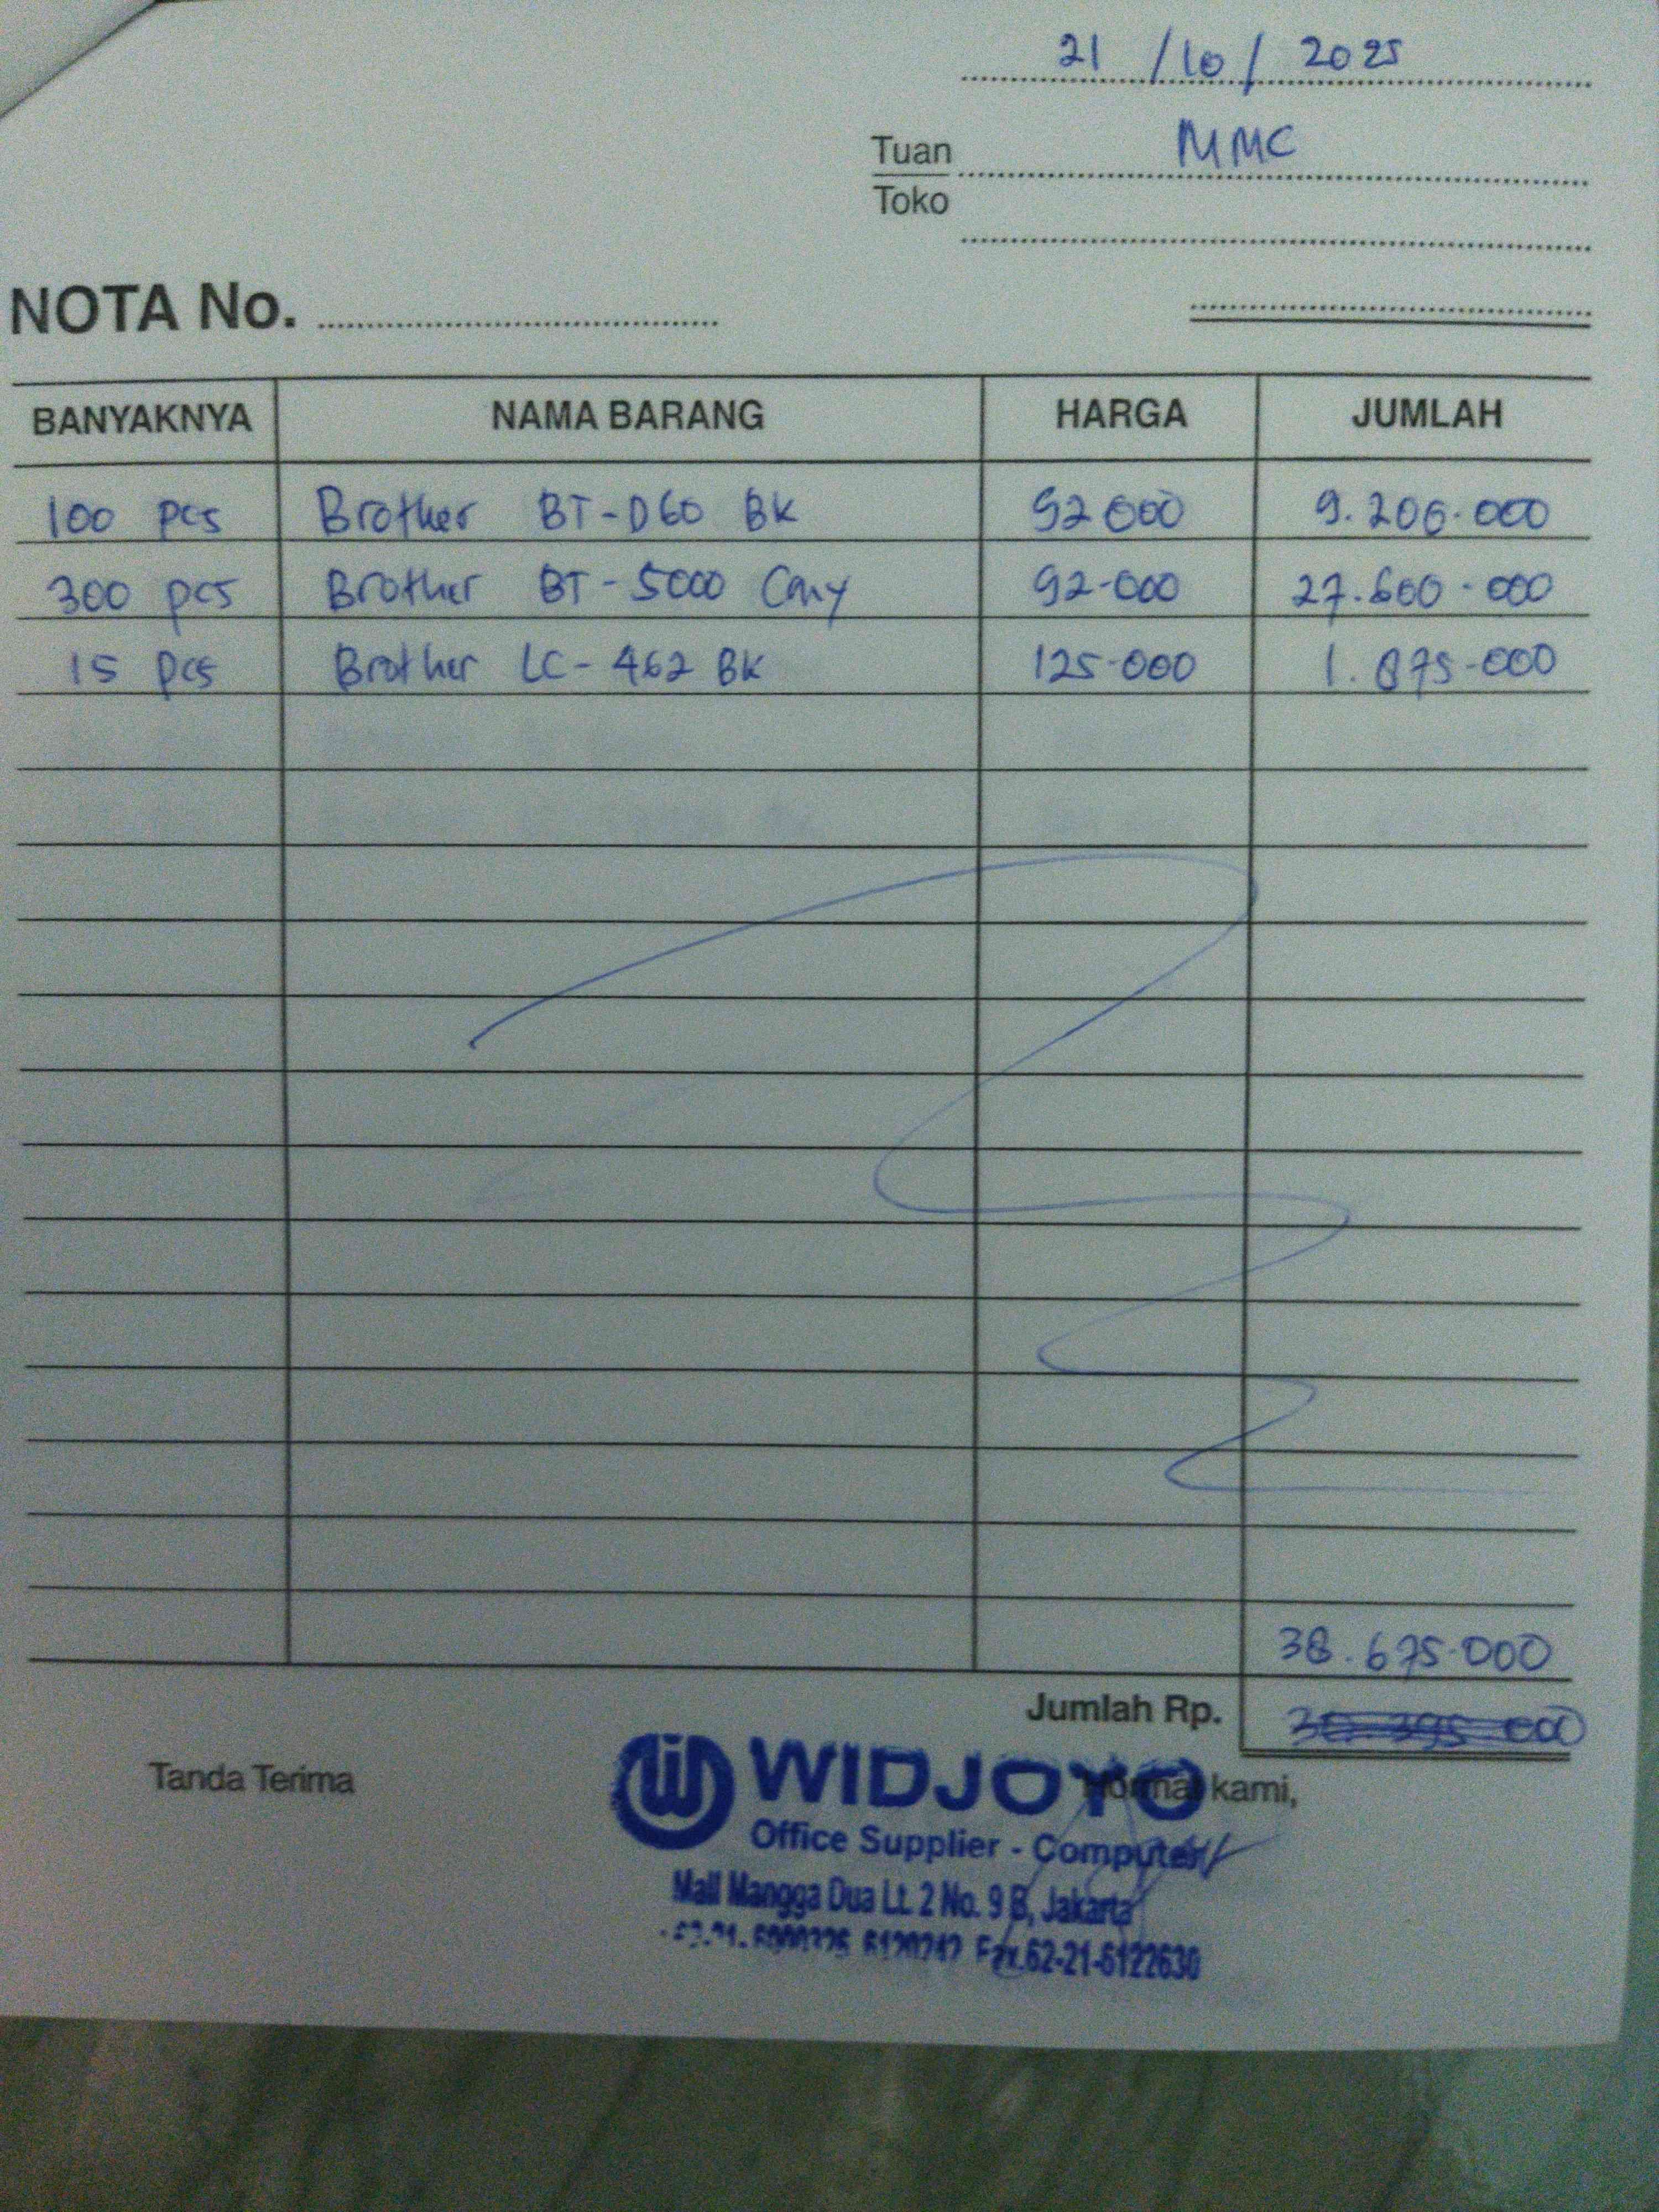 21 / 10 / 2025
Tuan MMC
Toko
NOTA No.
BANYAKNYA NAMA BARANG HARGA JUMLAH
100 pcs Brother BT-D60 BK 92000 9.200.000
300 pcs Brother BT-5000 Cmy 92-000 27.600-000
15 pcs Brother LC-462 BK 125-000 1.875-000
38.675-000
Jumlah Rp.
Tanda Terima
kami,
WIDJOYO
Office Supplier - Computer
Mall Mangga Dua Lt. 2 No. 9 B, Jakarta
Fax.62-21-6122630